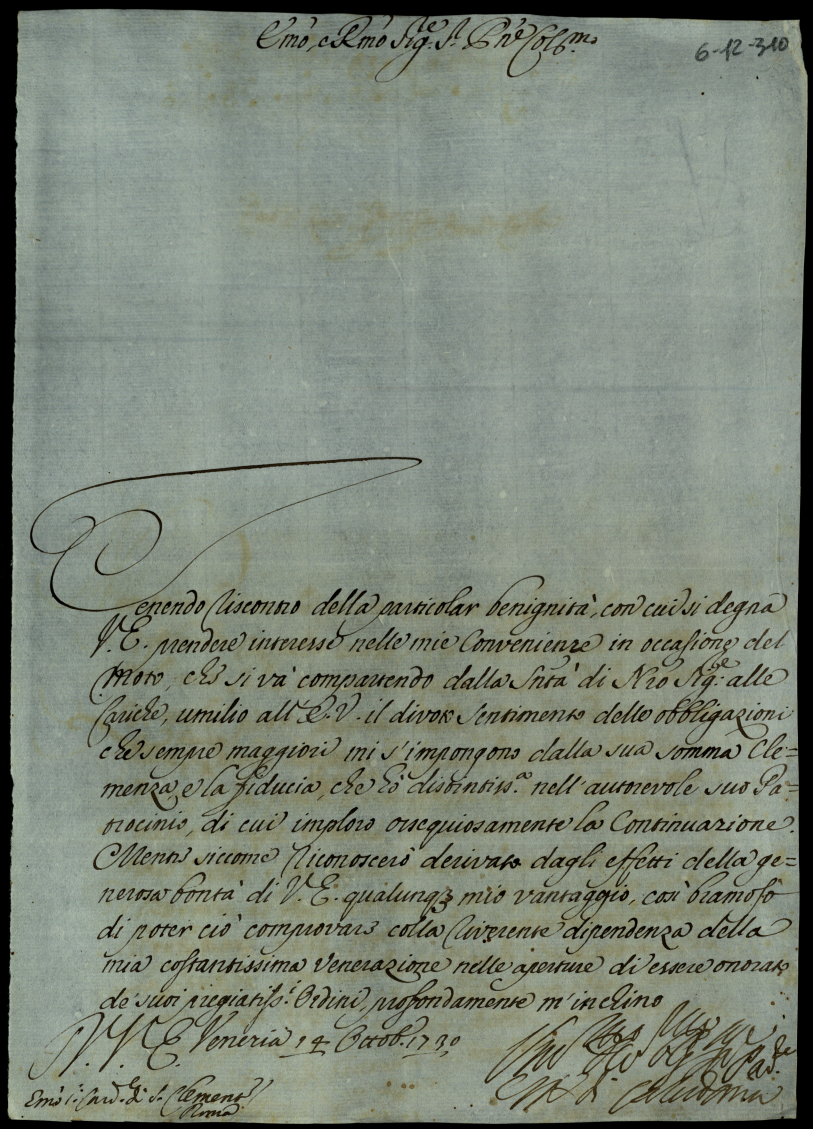 Emo, e Rmo Sig.re S.r Pne Col.mo
6-12-310
Tenendo riscontro della particolar benignità, con cui si degna
V. E. prendere interesse nelle mie Convenienze in occasione del
Moto, che si và compartendo dalla Sntà di Nro Sig.re alle
Cariche, umilio all' E. V. il divoto sentimento delle obbligazioni
che sempre maggiori mi s'impongono dalla sua somma Cle=
menza, e la fiducia, che hò distintiss.a nell'autorevole suo Pa=
trocinio, di cui imploro ossequiosamente la Continuazione.
Mentre siccome riconoscerò derivato dagli effetti della ge=
nerosa bontà di V. E. qualunq3 mio vantaggio, così bramoso
di poter ciò comprovare colla riverente dipendenza della
mia costantissima venerazione nelle aperture di essere onorato
de suoi pregiatiss.i Ordini, profondamente m'inchino
V. E. Venezia 14 Ottob. 1730
Emo S.r Card.le di S. Clemente
Roma